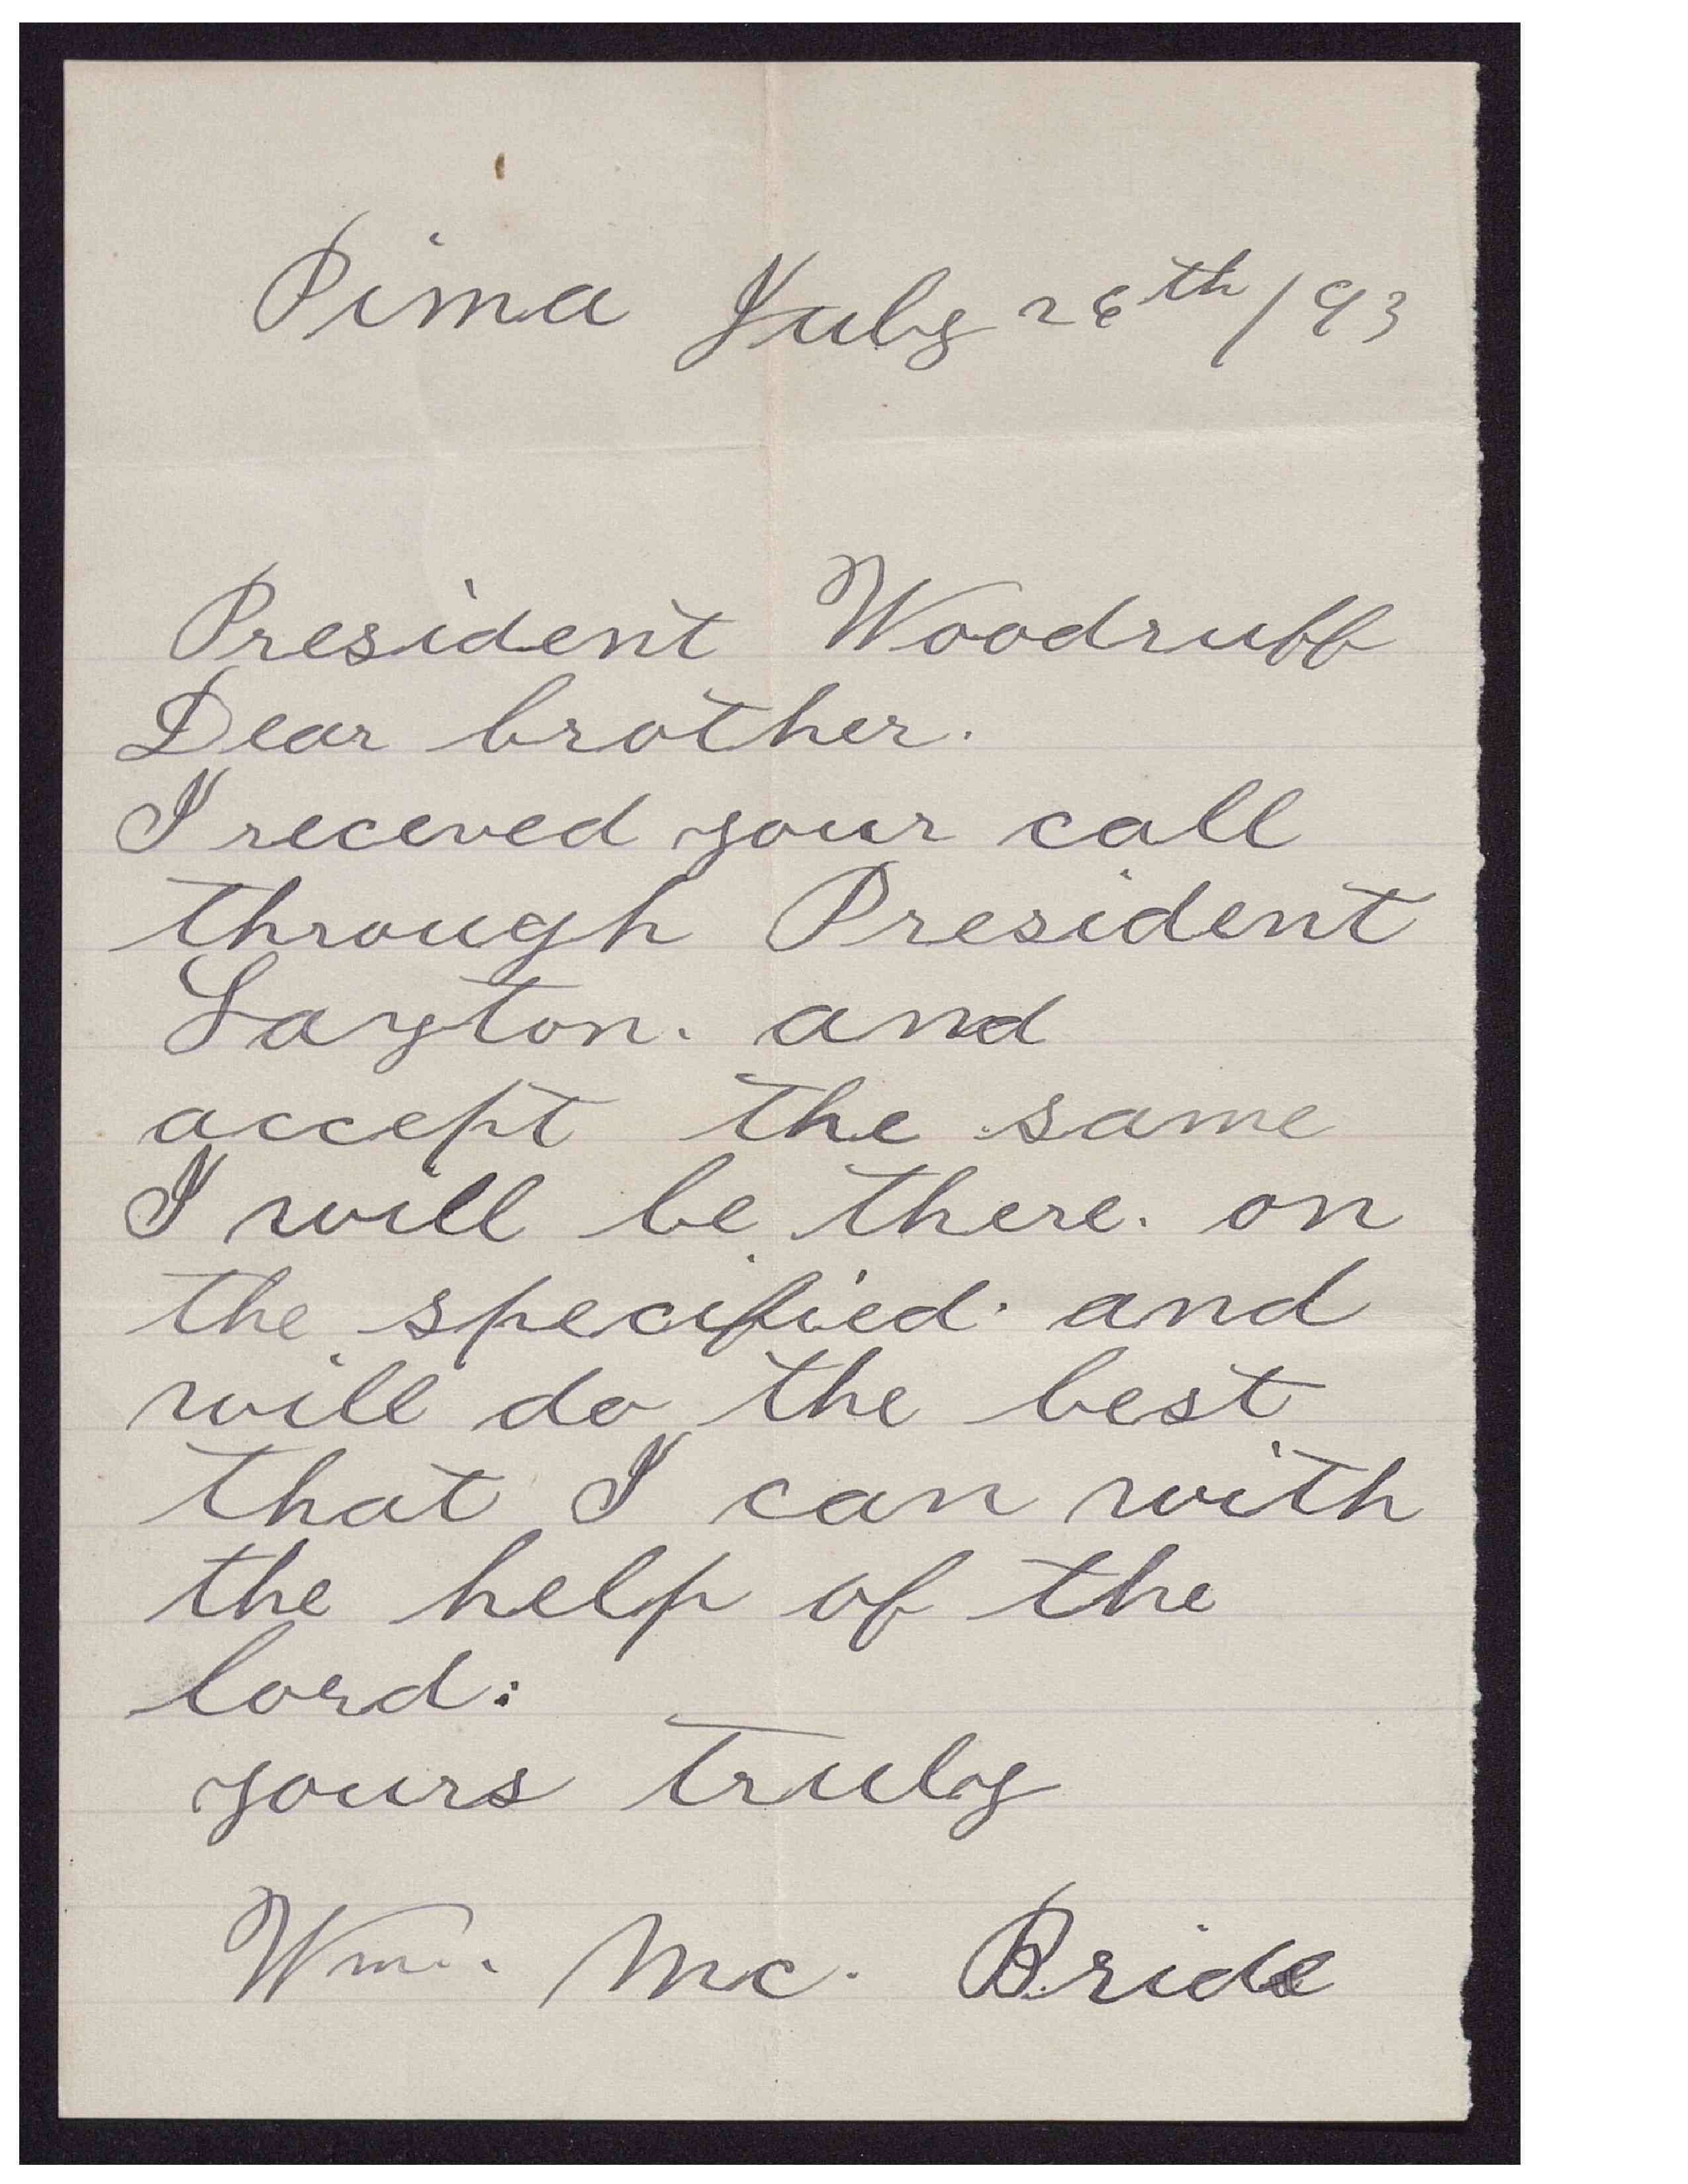 Pima July 26th/93
President Woodruff
Dear brother.
I receved your call
through President
Layton. and
accept the same
I will be there. on
the specified. and
will do the best
that I can with
the help of the
lord:
yours truly
Wm. Mc. Bride